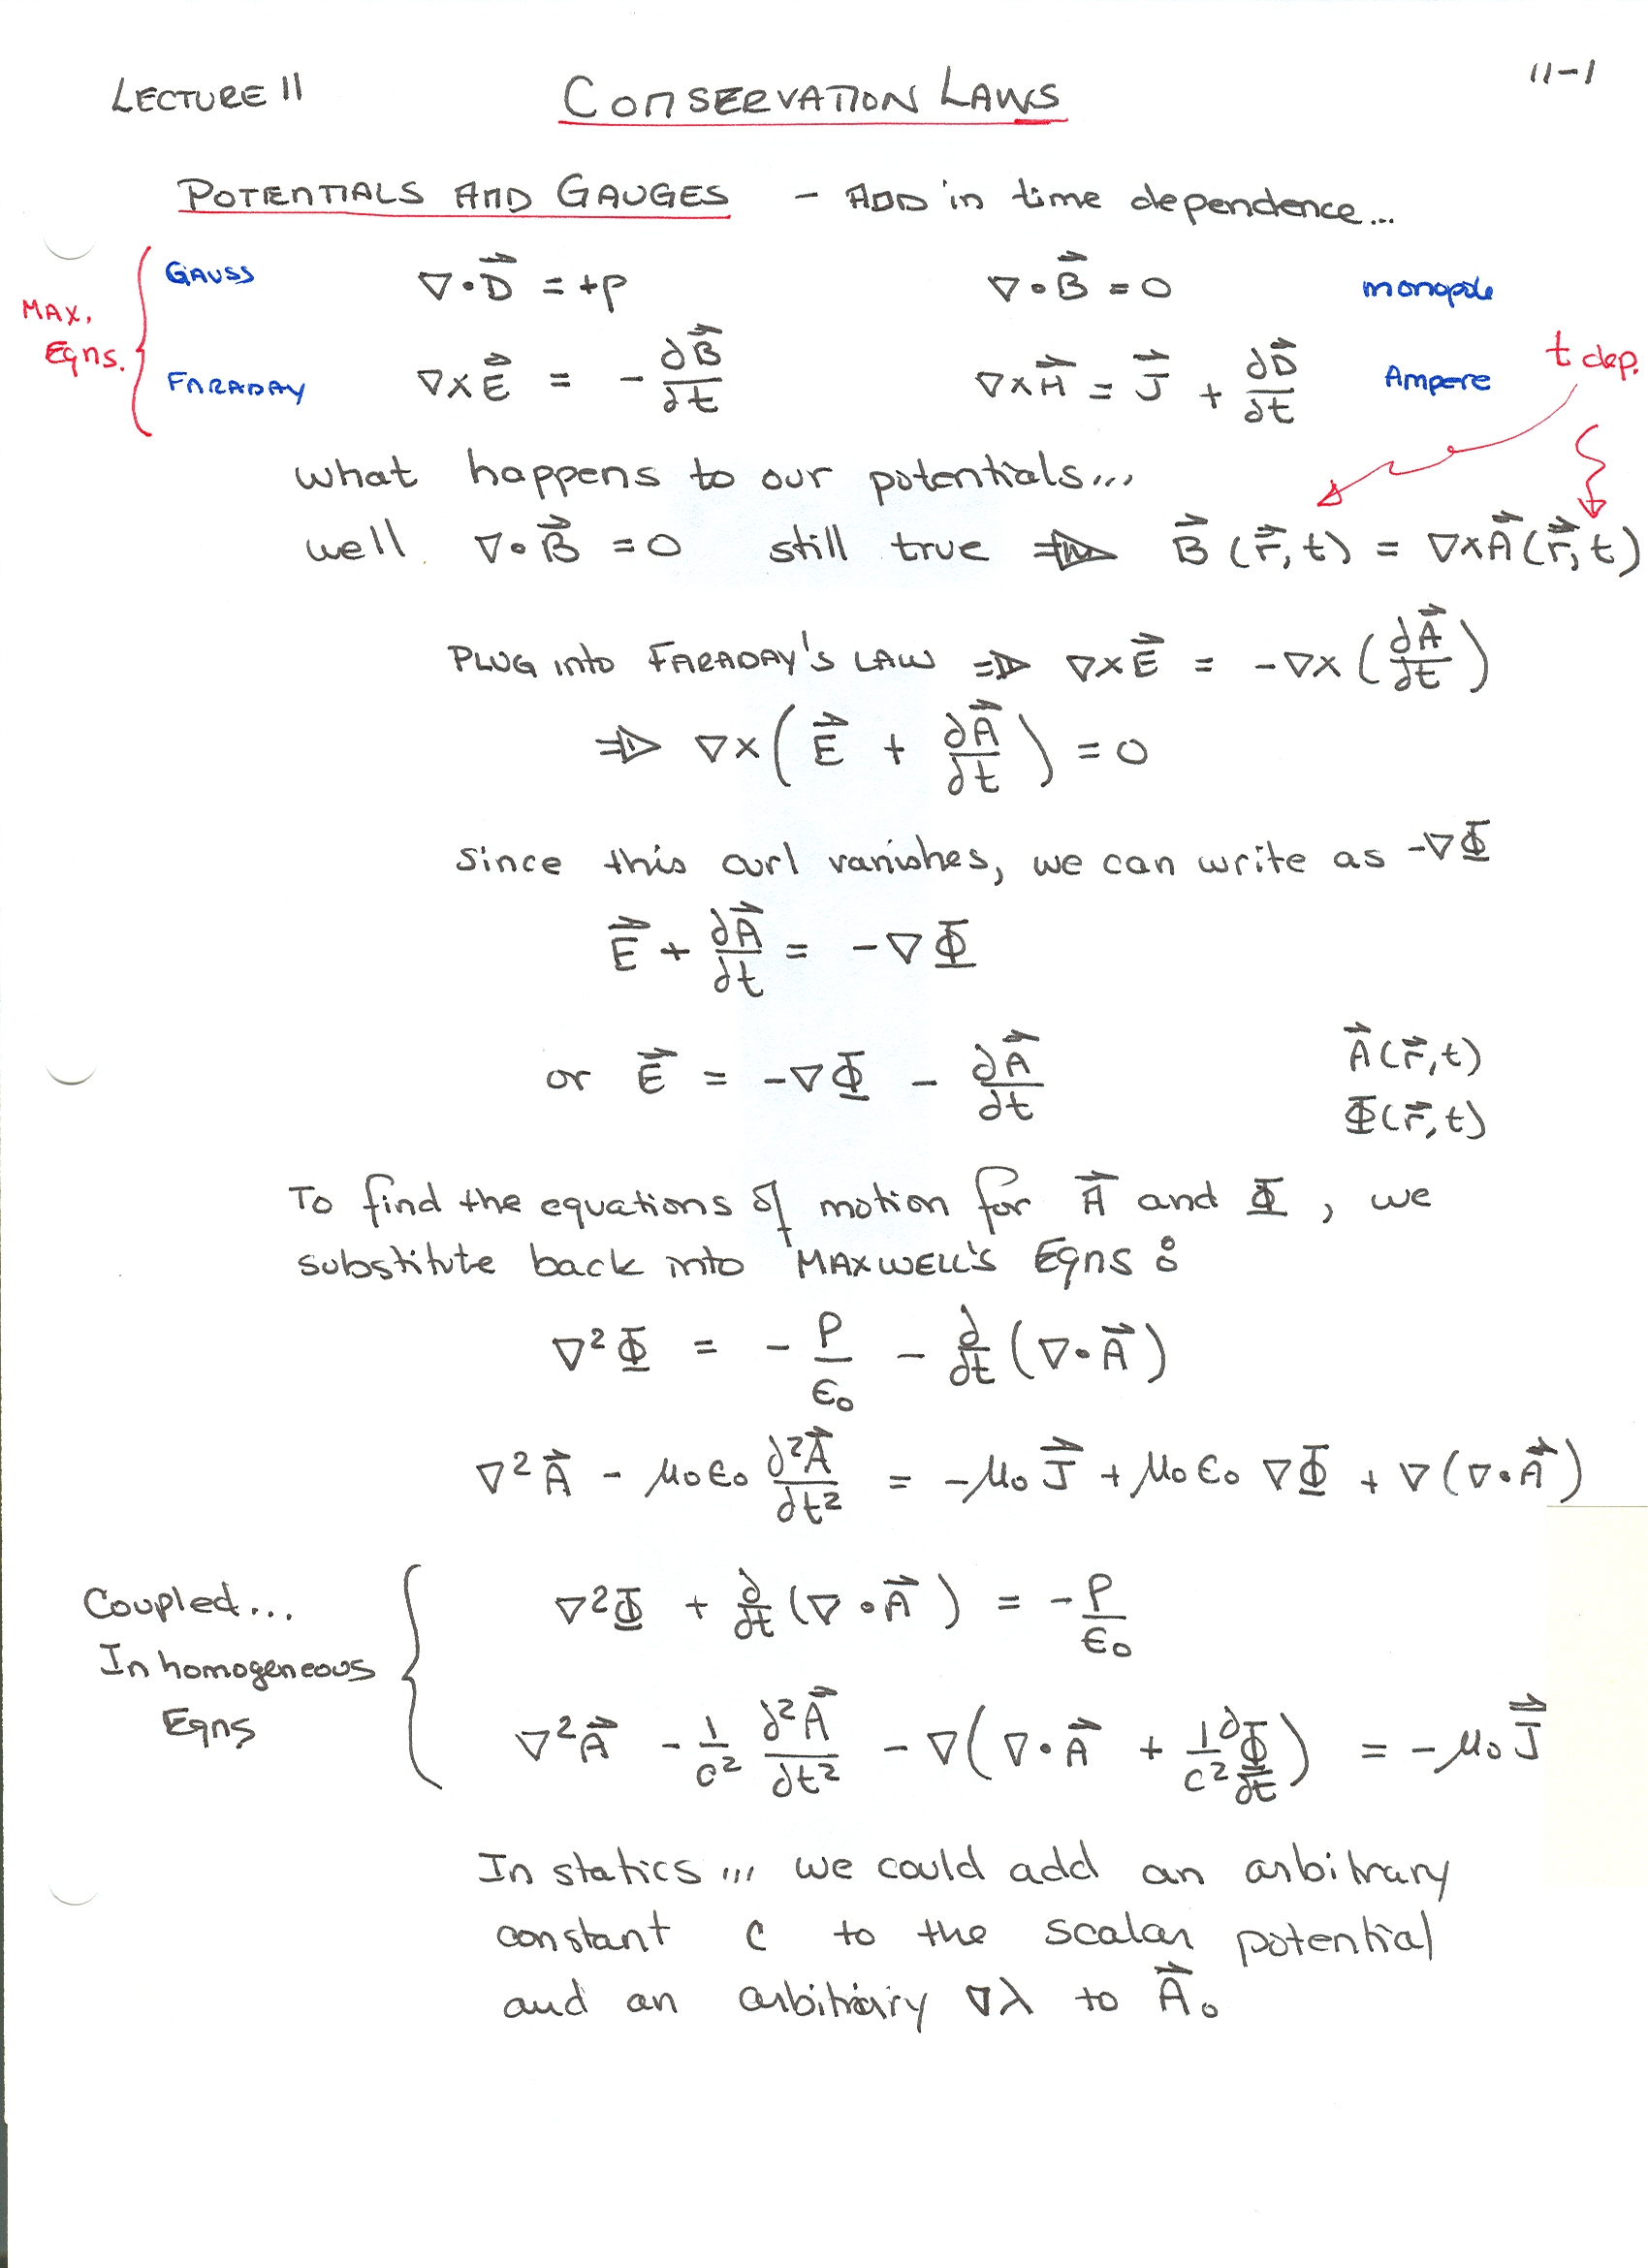 LECTURE 11 CONSERVATION LAWS 11-1
POTENTIALS AND GAUGES - ADD in time dependence...
MAX. Eqns.
GAUSS ∇·D⃗ = +ρ ∇·B⃗ = 0 monopole
FARADAY ∇×E⃗ = -∂B⃗/∂t ∇×H⃗ = J⃗ + ∂D⃗/∂t Ampere
t dep.
what happens to our potentials...
well ∇·B⃗ = 0 still true ⇒ B⃗(r⃗,t) = ∇×A⃗(r⃗,t)
PLUG into FARADAY'S LAW ⇒ ∇×E⃗ = -∇×(∂A⃗/∂t)
⇒ ∇×(E⃗ + ∂A⃗/∂t) = 0
Since this curl vanishes, we can write as -∇Φ
E⃗ + ∂A⃗/∂t = -∇Φ
or E⃗ = -∇Φ - ∂A⃗/∂t
A⃗(r⃗,t)
Φ(r⃗,t)
To find the equations of motion for A⃗ and Φ, we
substitute back into MAXWELL'S Eqns:
∇²Φ = -ρ/ε₀ - ∂/∂t(∇·A⃗)
∇²A⃗ - μ₀ε₀ ∂²A⃗/∂t² = -μ₀J⃗ + μ₀ε₀ ∇Φ + ∇(∇·A⃗)
Coupled...
Inhomogeneous
Eqns
∇²Φ + ∂/∂t(∇·A⃗) = -ρ/ε₀
∇²A⃗ - 1/c² ∂²A⃗/∂t² - ∇(∇·A⃗ + 1/c² ∂Φ/∂t) = -μ₀J⃗
In statics... we could add an arbitrary
constant c to the scalar potential
and an arbitrary ∇λ to A⃗.